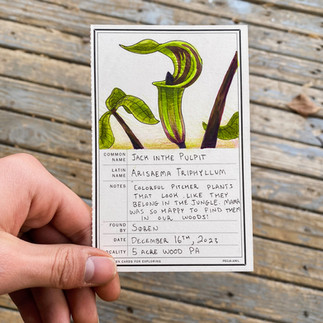 COMMON NAME JACK IN THE PULPIT
LATIN NAME ARISAEMA TRIPHYLLUM
NOTES COLORFUL PITCHER PLANTS
THAT LOOK LIKE THEY
BELONG IN THE JUNGLE. MAMA
WAS SO HAPPY TO FIND THEM
IN OUR WOODS!
FOUND BY SØREN
DATE DECEMBER 16TH, 2023
LOCALITY 5 ACRE WOOD PA
CARDS FOR EXPLORING